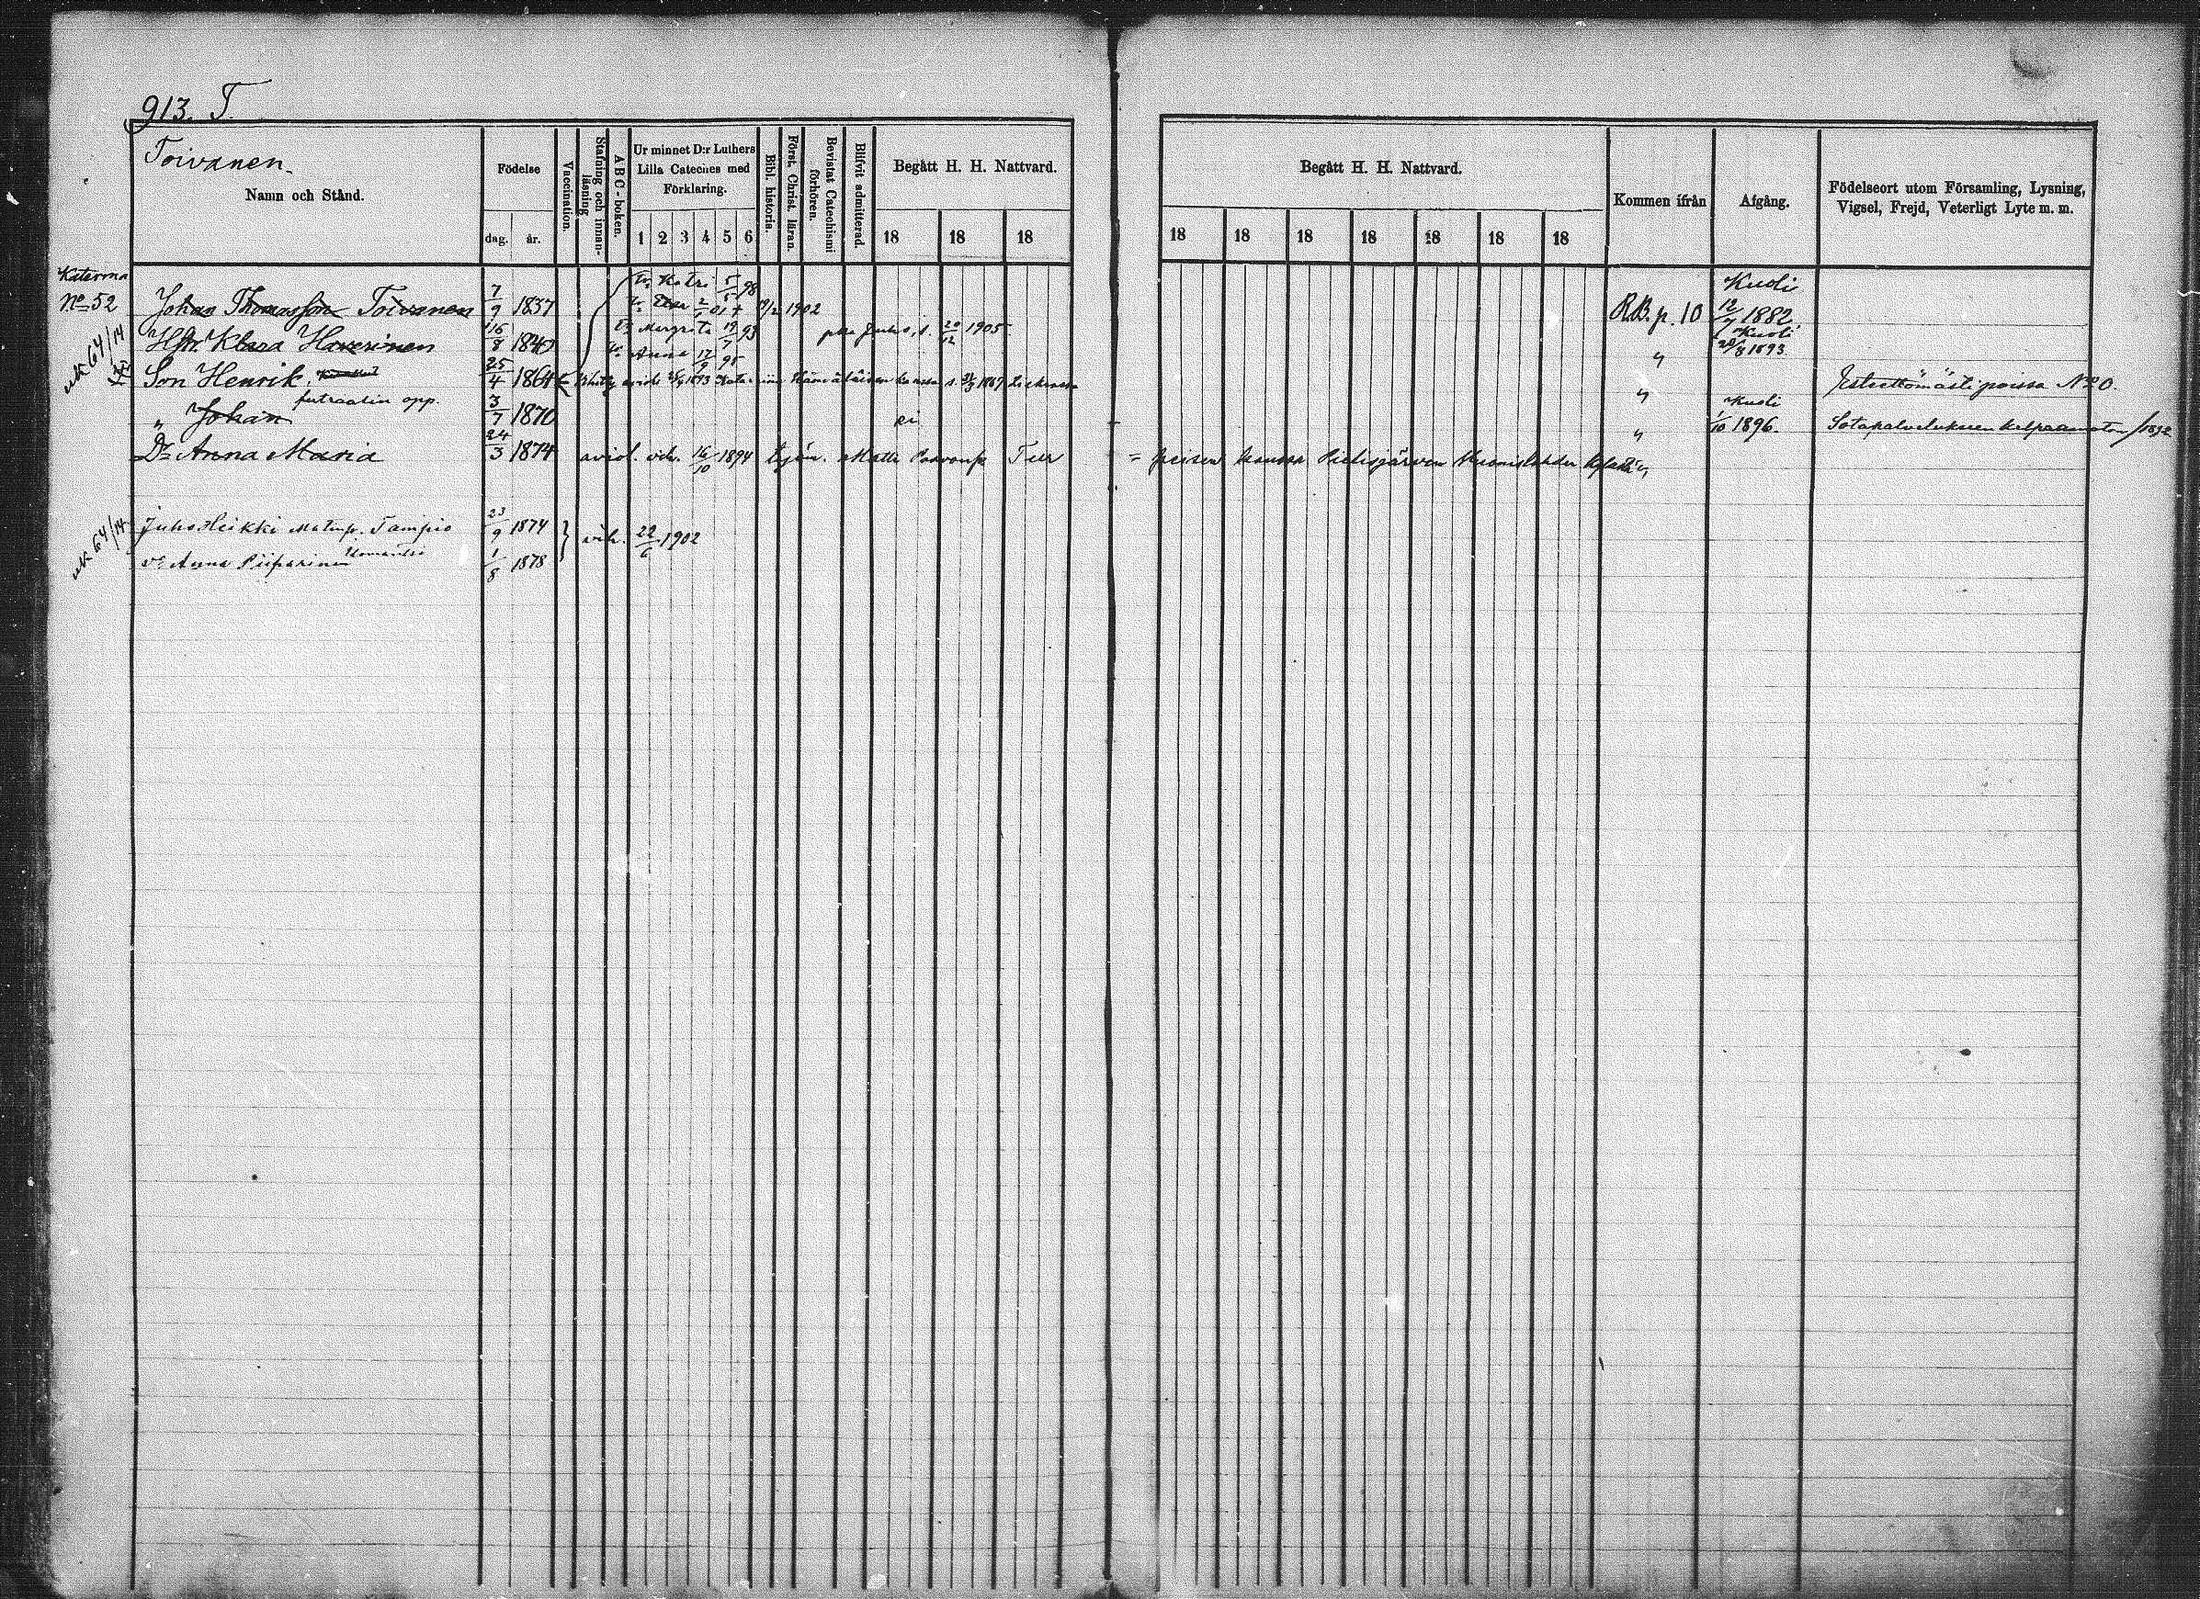 913. T.
Toivanen.
Namn och Stånd.
Födelse
dag. år.
Vaccination.
Stafning och innan-läsning
ABC-boken.
Ur minnet D:r Luthers
Lilla Cateches med
Förklaring.
1 2 3 4 5 6
Bibl. historia.
Först. Christ. läran.
Bevistat Catechismi förhören.
Blifvit admitterad.
Begått H. H. Nattvard.
18 18 18
Begått H. H. Nattvard.
18 18 18 18 18 18 18
Kommen ifrån
Afgång.
Födelseort utom Församling, Lysning,
Vigsel, Frejd, Veterligt Lyte m. m.
Katerma
No 52
Tr Katri 5/5 98
Johan Thomasson Toivanen 7/9 1837
1902
R.B. p. 10
Kuoli
12/7 1882
Hu Klara Haverinen 16/8 1840
Tr Margreta 19/7 93
Juho s. 20/12 1905
"
Kuoli
20/8 1893
Tr Anna 17/9 95
uk 64/14
Son Henrik 25/4 1864
opp.
"
No 0.
" Johan 3/7 1870
ei
"
Kuoli
1/10 1896.
Sotapalvelukseen kelpaamaton /1892
Dr Anna Maria 24/3 1874
aviol. vih. 16/10 1894 Matti Paavonp. Tur
= peisen kanssa Pielisjärven
"
uk 64/14
Juho Heikki Matinp. Tampio 23/9 1874
vih. 22/6 1902
vo Anna Piiparinen 1/8 1878